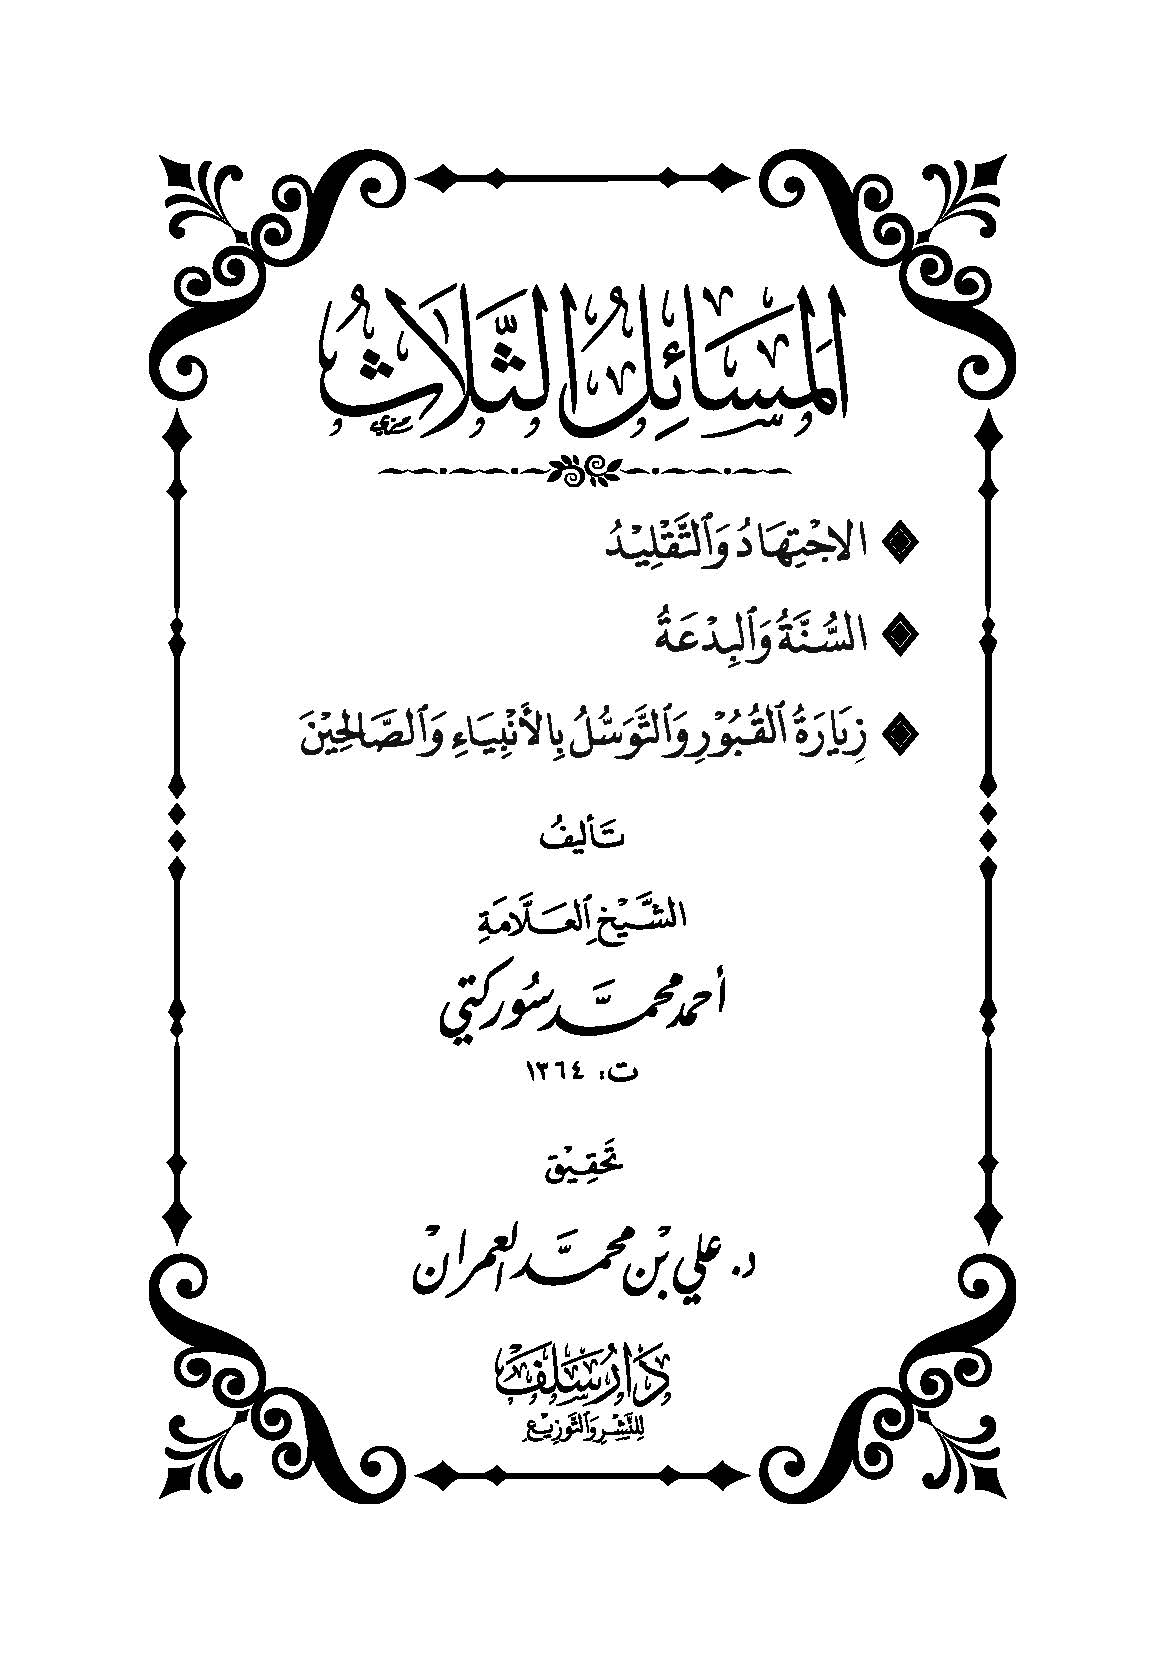 المَسَائِلُ الثَّلَاثُ
الاجْتِهَادُ وَٱلتَّقْلِيْدُ
السُّنَّةُ وَٱلبِدْعَةُ
زِيَارَةُ ٱلقُبُوْرِ وَٱلتَّوَسُّلُ بِالأَنْبِيَاءِ وَٱلصَّالِحِيْنَ
تَأليفُ
الشَّيْخِ ٱلعَلَّامَةِ
أحمد محمَّد سُوركتي
ت: ١٣٦٤
تَحْقِيْق
د. علي بْن محمَّد العمران
دَارُ سَلَفْ
لِلنَّشْرِ وَالتَّوْزِيْعِ